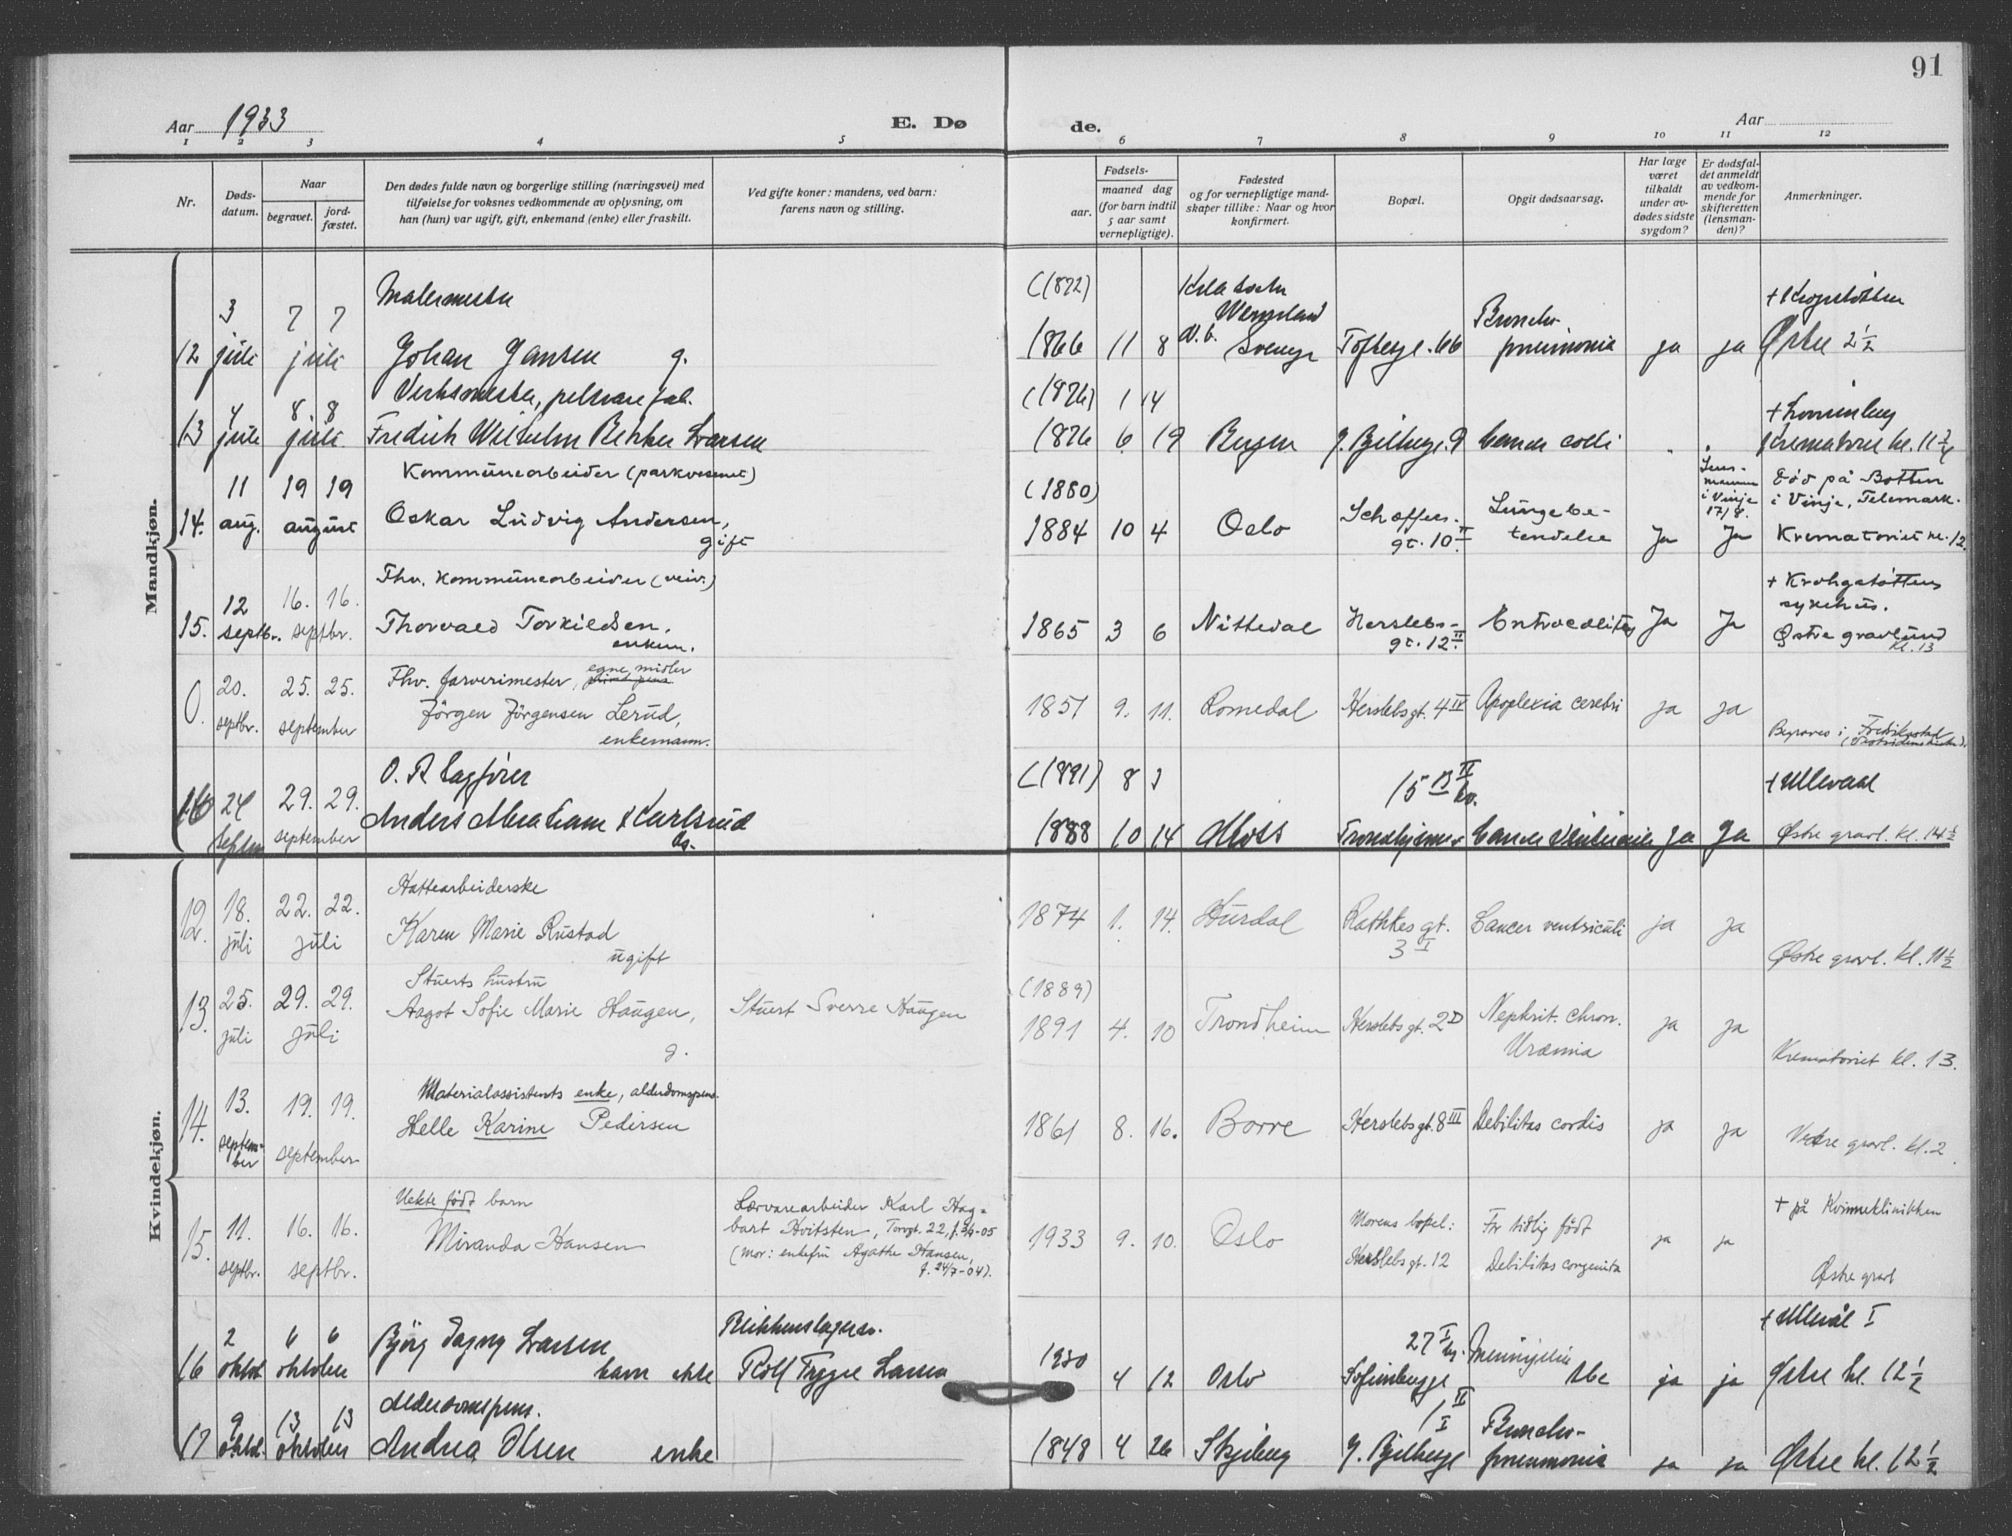 91
Aar 1933
E. Dø
de.
Aar
1 2 3 4 5 6 7 8 9 10 11 12
Nr.
Døds-
datum.
Naar
begravet.
jord-
fæstet.
Den dødes fulde navn og borgerlige stilling (næringsvei) med
tilføielse for voksnes vedkommende av oplysning, om
han (hun) var ugift, gift, enkemand (enke) eller fraskilt.
Ved gifte koner: mandens, ved barn:
farens navn og stilling.
Fødsels-
aar.
maaned dag
(for barn indtil
5 aar samt
vernepligtige).
Fødested
og for vernepligtige mand-
skaper tillike: Naar og hvor
konfirmert.
Bopæl.
Opgit dødsaarsag.
Har læge
været
tilkaldt
under av-
dødes sidste
sygdom?
Er dødsfal-
det anmeldt
av vedkom-
mende for
skifteretten
(lensman-
den)?
Anmerkninger.
Mandkjøn.
Malermester (1872)
3 7 7
12 juli juli Johan Jansen g. 1866 11 8 Sverige 66 pneumonia ja ja Østre 2½
(1876) 1 14
4 8 8
13 juli juli Fredrik Wilhelm Larsen 1876 6 19 Bergen Cancer coli Krematoriet kl. 11
Kommunearbeider (parkvesenet) (1880) Lens-
mannen
i Vinje
17/8. Død på Botten
i Vinje, Telemark.
11 19 19
14. aug. august Oskar Ludvig Andersen, gift 1884 10 4 Oslo Schaffers-
gt. 10 II Lungebe-
tendelse Ja Ja Krematoriet kl. 12.
Fhv. kommunearbeider (veiv.) + Krohgstøttens
sykehus.
12 16. 16.
15. septbr. septbr. Thorvald Torkildsen, enkem. 1865 3 6 Nittedal Herslebs-
gt. 12 II Ja Ja Østre gravlund
kl. 13
Fhv. farverimester, egne midler
20. 25. 25.
0. septbr. september Jörgen Jörgensen Lerud, enkemann. 1851 9. 11. Romedal Herslebsgt. 4 IV Apoplexia cerebri ja ja Begraves i Fredrikstad
(1891) 8 3 15 + Ullevaal
24 29. 29.
16 septem september Anders Abraham Karlsrud 1888 10 14 Moss Trondhjemsv Cancer ja ja Østre gravl. kl. 14½
Kvindekjøn.
Hattearbeiderske
12. 18. juli 22. 22. juli Karen Marie Rustad ugift 1874 1. 14. Hurdal Rathkes gt.
3 I Cancer ventriculi ja ja Østre gravl. kl. 11½
Stuerts hustru (1889)
13. 25. juli 29. 29. juli Aagot Sofie Marie Haugen, g. Stuert Sverre Haugen 1891 4. 10 Trondheim Herslebsgt. 2D Nephrit. chron.
Uræmia ja ja Krematoriet kl. 13.
Materialassistents enke, alderdomspens.
14. 13. septem-
ber 19. 19. september Helle Karine Pedersen 1861 8. 16. Borre Herslebsgt. 8 III Debilitas cordis ja ja Vestre gravl. kl. 2
Uekte født barn
15. 11. septbr. 16. 16. septbr. Miranda Hansen Lærvarearbeider Karl Hag-
bart Hvitsten, Torvgt. 22,
(mor: enkefru Agathe Hansen,
f. 24/7-04). 1933 9. 10. Oslo Morens bopel:
Herslebsgt. 12 For tidlig født
Debilitas congenita ja ja + på Kvinneklinikken
Østre gravl
Blikkenslagersv. 27 I + Ullevål I
2 6 6
16 oktob oktober Bjørg Dagny Larsen barn ekte Rolf Trygve Larsen 1930 4 12 Oslo Sofienbergg tbc ja ja Østre kl. 12½
Alderdomspens.
9 13 13
17 oktob. oktober Andrea Olsen enke 1848 4 26 Skjeberg Broncho-
pneumonia ja ja Østre kl. 12½